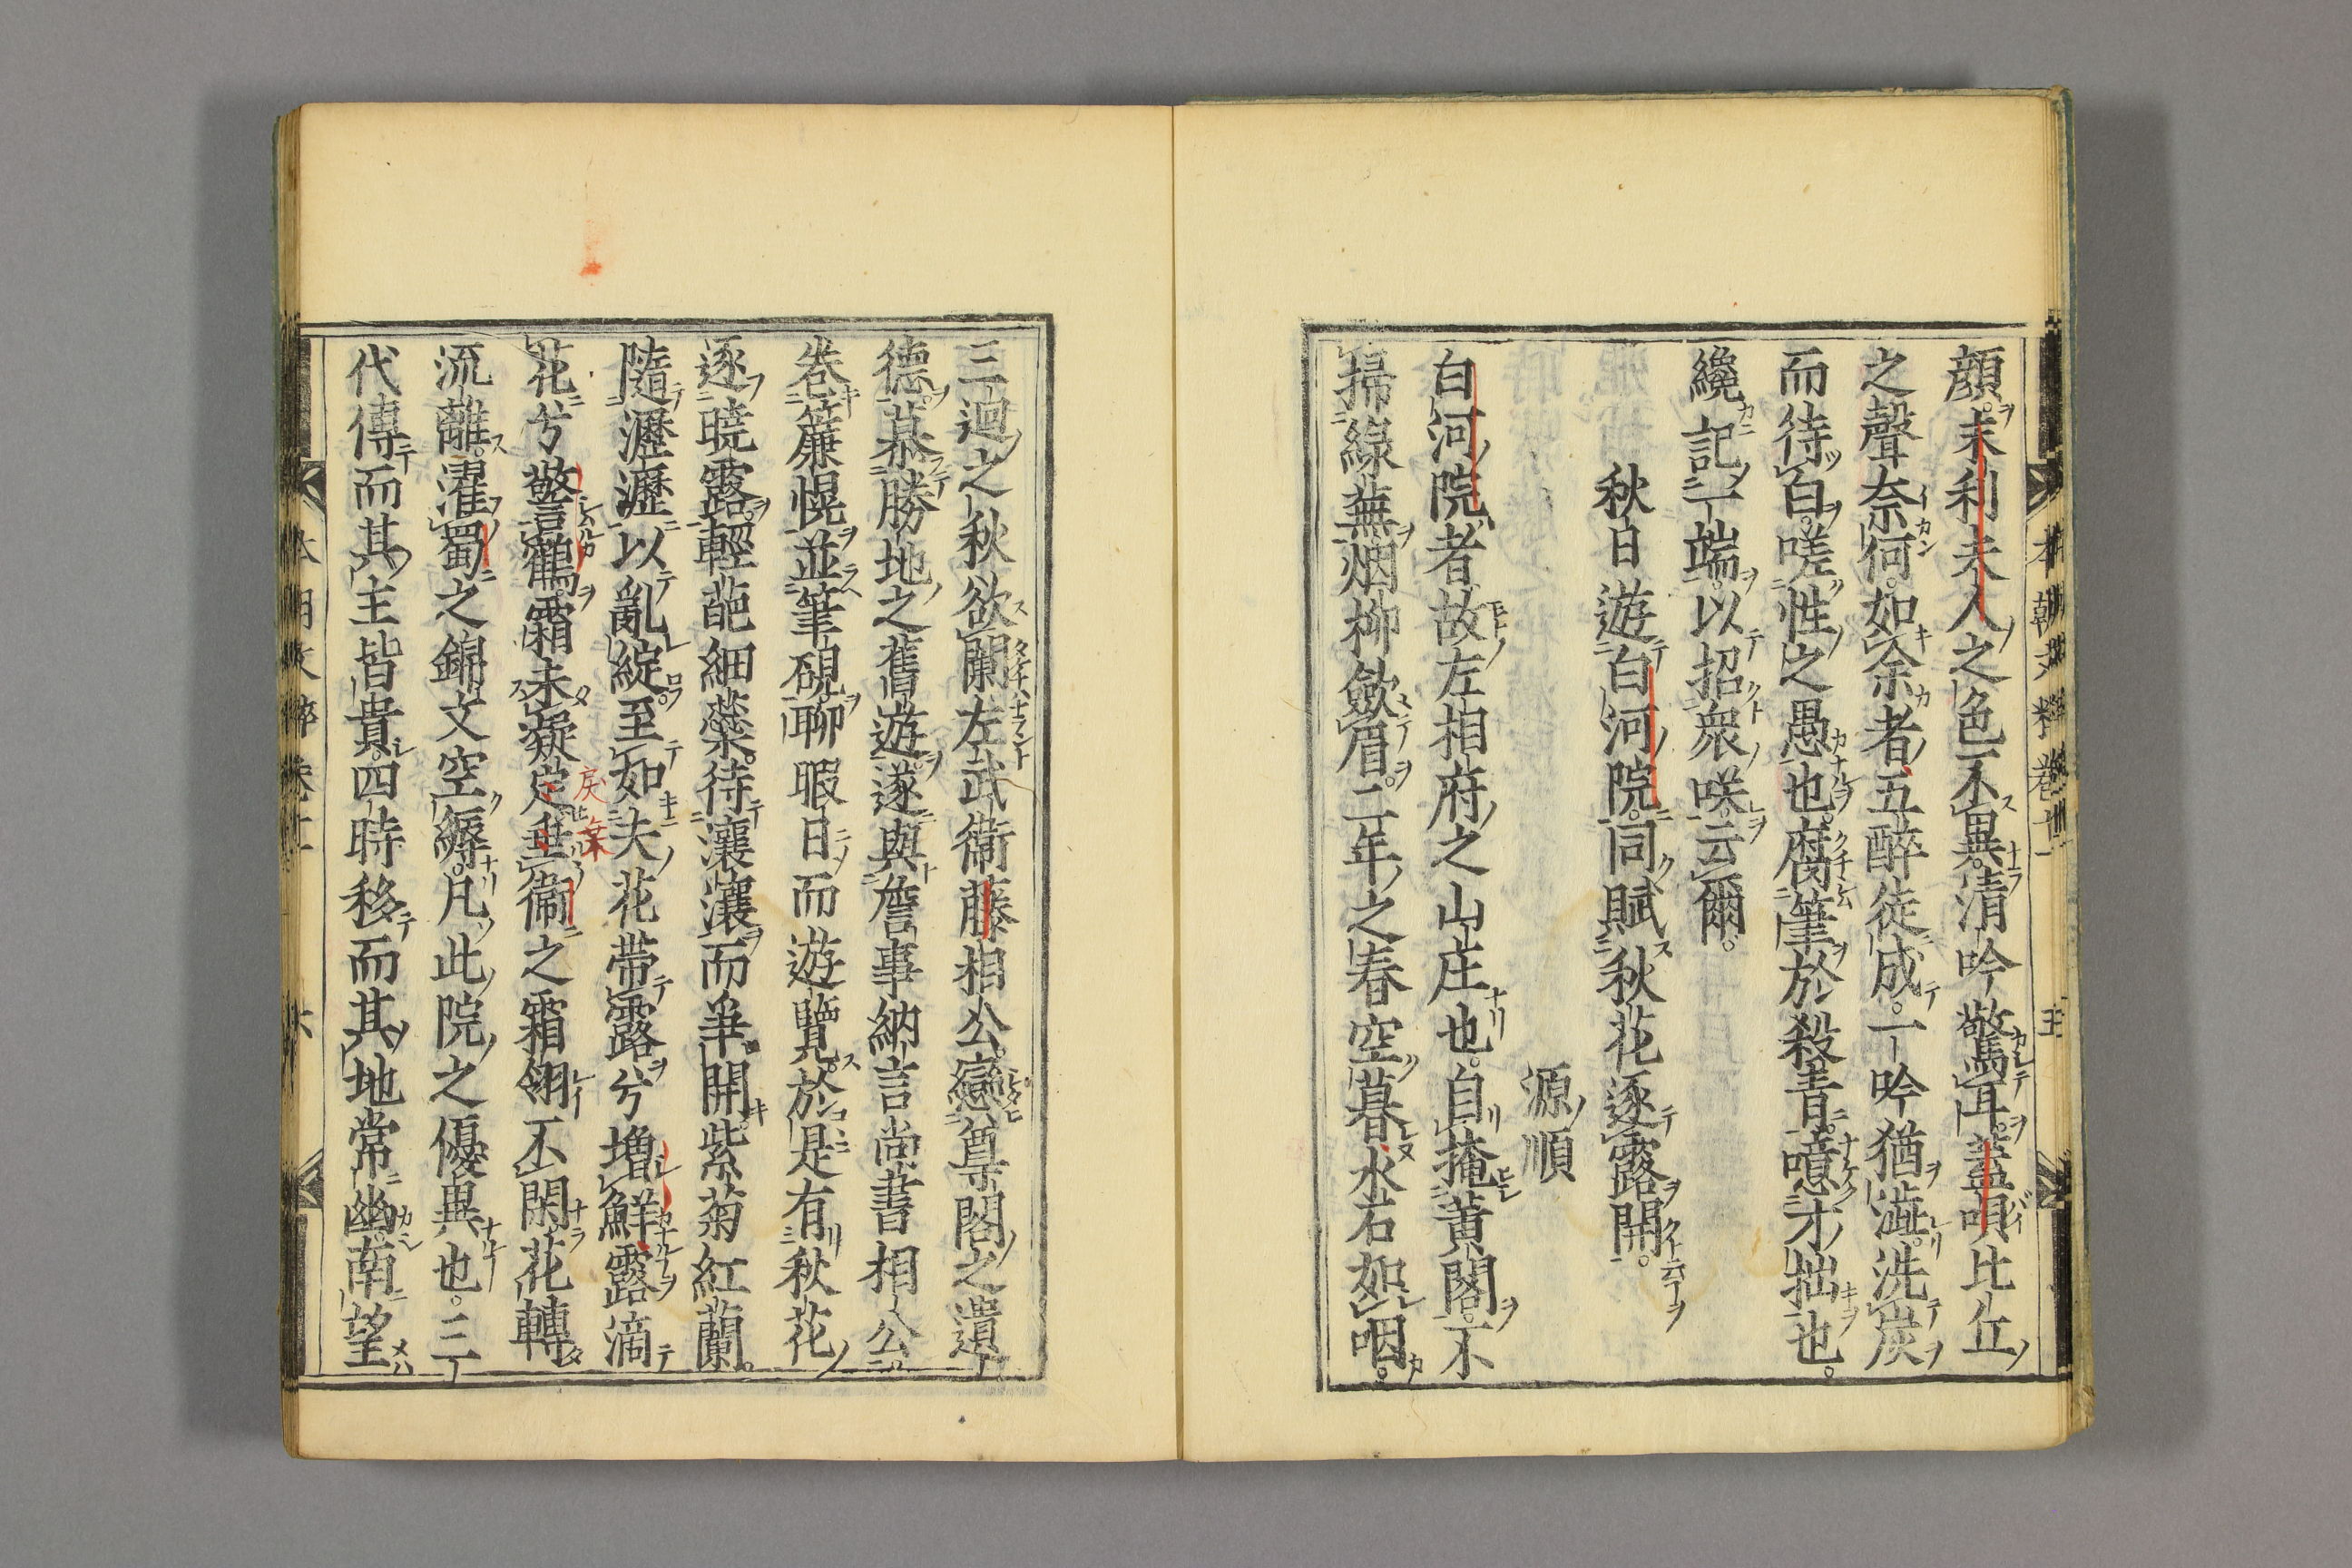 顔。末利夫人之色不異。清吟驚耳。蓋唄比丘
之聲奈何。如余者五醉徒成。一吟猶澁。洗炭
而待白。嗟性之愚也。腐筆於殺青。噫才拙也。
纔記一端。以招衆咲。云爾。
秋日遊白河院。同賦秋花逐露開。
源順
白河院者。故左相府之山庄也。自掩黄閣。不
掃緑蕪。烟柳斂眉。二年之春空暮。水石如咽。
三廻之秋欲闌。左武衛藤相公。戀尊閤之遺
德。慕勝地之舊遊。遂與詹事納言尚書相公。
巻簾幌並筆硯。聊暇日而遊覽。於是有秋花
逐曉露。輕葩細蘂。待瀼瀼而争開。紫菊紅蘭。
隨瀝瀝以亂綻。至如夫花帯露兮増鮮。露滴
花兮警鶴。霜未凝。定垂衛之霜翎不閑。花轉
戻 乗
流離。濯蜀之錦文空縟。凡此院之優異也。三
代傳而其主皆貴。四時移而其地常幽。南望